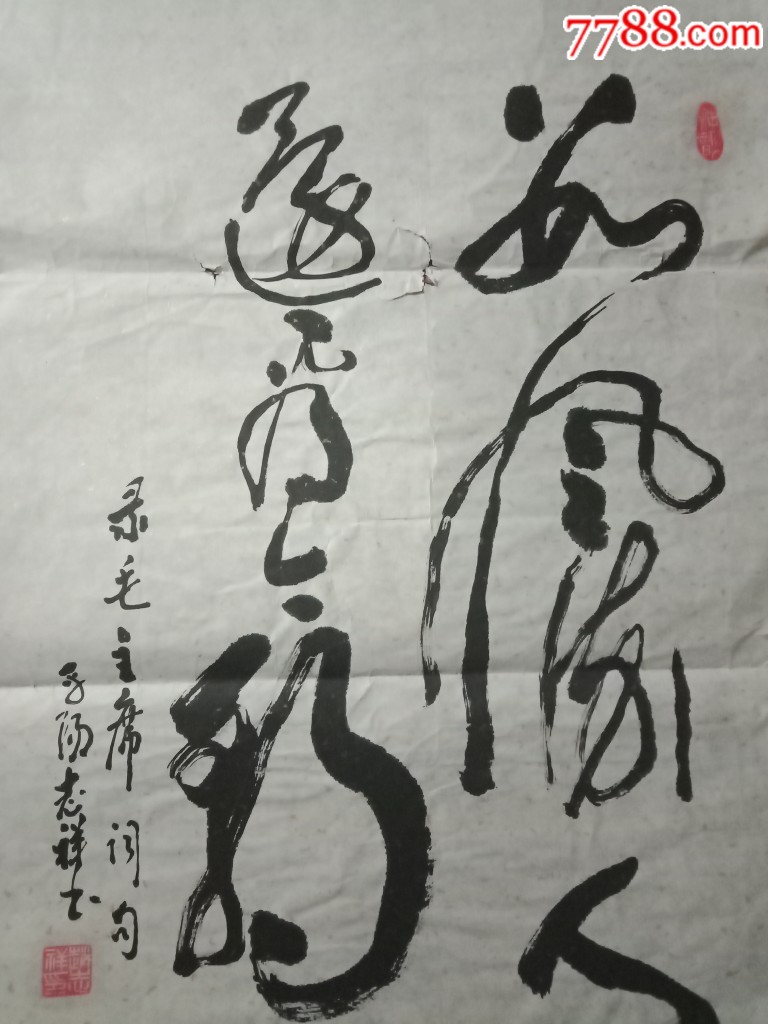 7788.com
数风流人
还看今朝
录毛主席词句
阳志祥书